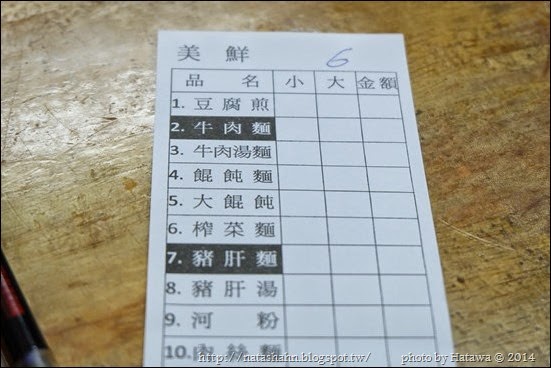 美 鮮 6
品 名 小 大 金額
1. 豆腐煎
2. 牛肉麵
3. 牛肉湯麵
4. 餛飩麵
5. 大餛飩
6. 榨菜麵
7. 豬肝麵
8. 豬肝湯
9. 河 粉
10. 肉絲麵
https://natashahn.blogspot.tw/ photo by Hatawa © 2014